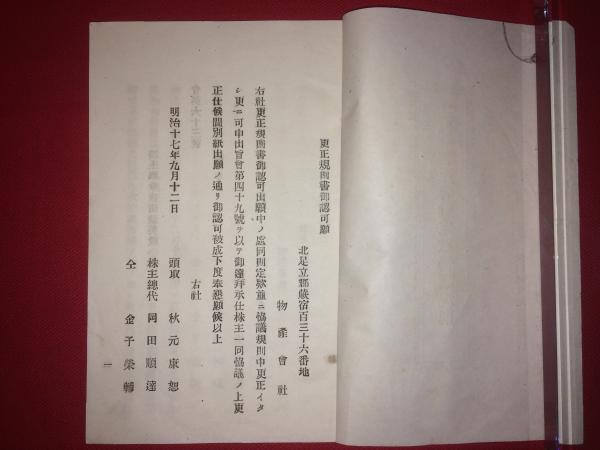 更正規則書御認可願
北足立郡蕨宿百三十六番地
物產會社
右社更正規則書御認可出願中ノ處同則定欵並ニ協議規則中更正イタ
シ更ニ可申出旨會第四十九號ヲ以テ御達拜承仕株主一同協議ノ上更
正仕候間別紙出願ノ通リ御認可被成下度奉懇願候以上
右社
明治十七年九月十二日
頭取 秋元康恕
株主總代 岡田順達
仝 金子榮輔
一